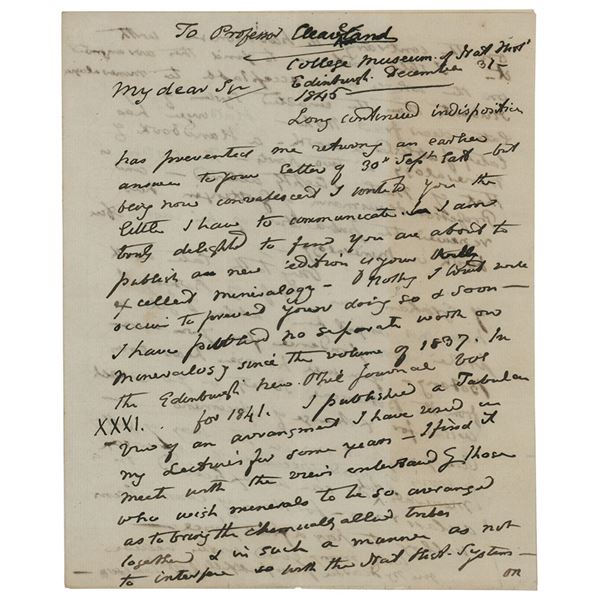 To Professor Cleaveland
College Museum of Nat Hist
Edinburgh. December 31
1845
My dear Sir
Long continued indisposition
has prevented me returning an earlier
answer to your letter of 30th Septr last – but
being now convalescent I write to you the
little I have to communicate. I am
truly delighted to find you are about to
publish a new edition of your
excellent mineralogy – nothing
occur to prevent your doing so & soon –
I have published no separate work on
Mineralogy since the volume of 1837. In
the Edinburgh New Phil Journal vol
XXXI. for 1841. I published a Tabular
view of an arrangment I have used in
my Lectures for some years – I find it
meets with the views of those
who wish minerals to be so arranged
as to bring the chemically allied tribes
together & in such a manner as not
to interfere so with the Nat Hist. System –
on